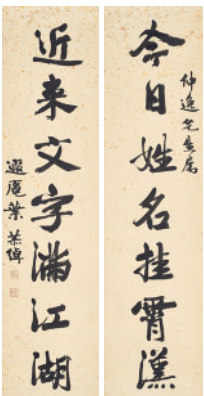 仲逸先生属
今日姓名挂霄漢
近来文字滿江湖
遐庵葉恭綽